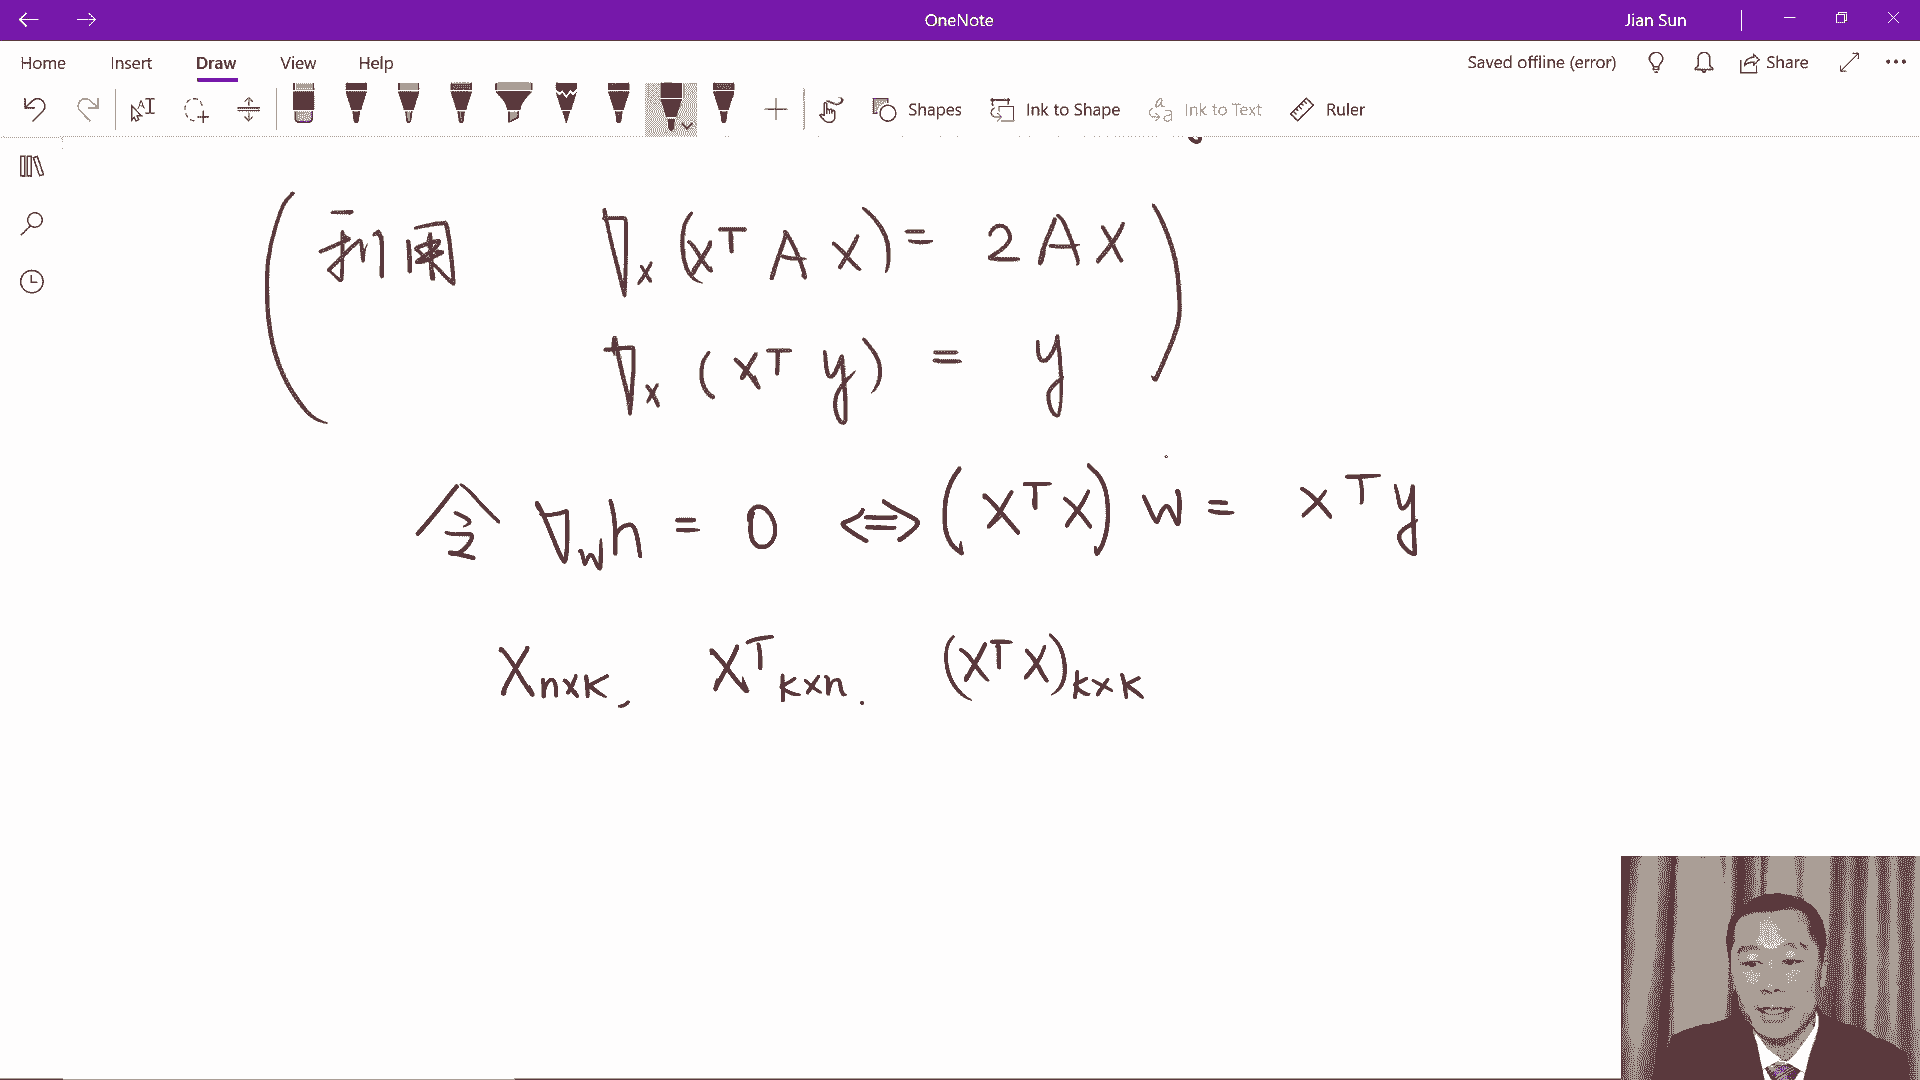 OneNote
Jian Sun
Home Insert Draw View Help
Saved offline (error)
Share
Shapes Ink to Shape Ink to Text Ruler
(利用 ∇ₓ (xᵀ A x) = 2 A x
∇ₓ (xᵀ y) = y)
令 ∇_w h = 0 ⟺ (Xᵀ X) w = Xᵀ y
X_{n×k}, Xᵀ_{k×n}. (Xᵀ X)_{k×k}